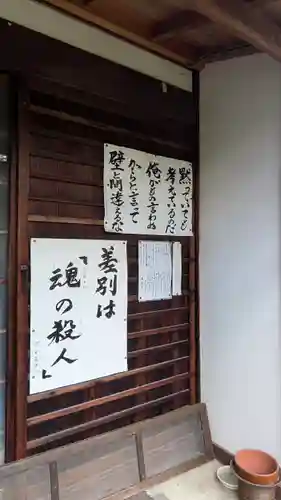 黙っていても
考えているのだ
俺がもの言わぬ
からと言って
壁と間違えるな
差別は
「魂の殺人」